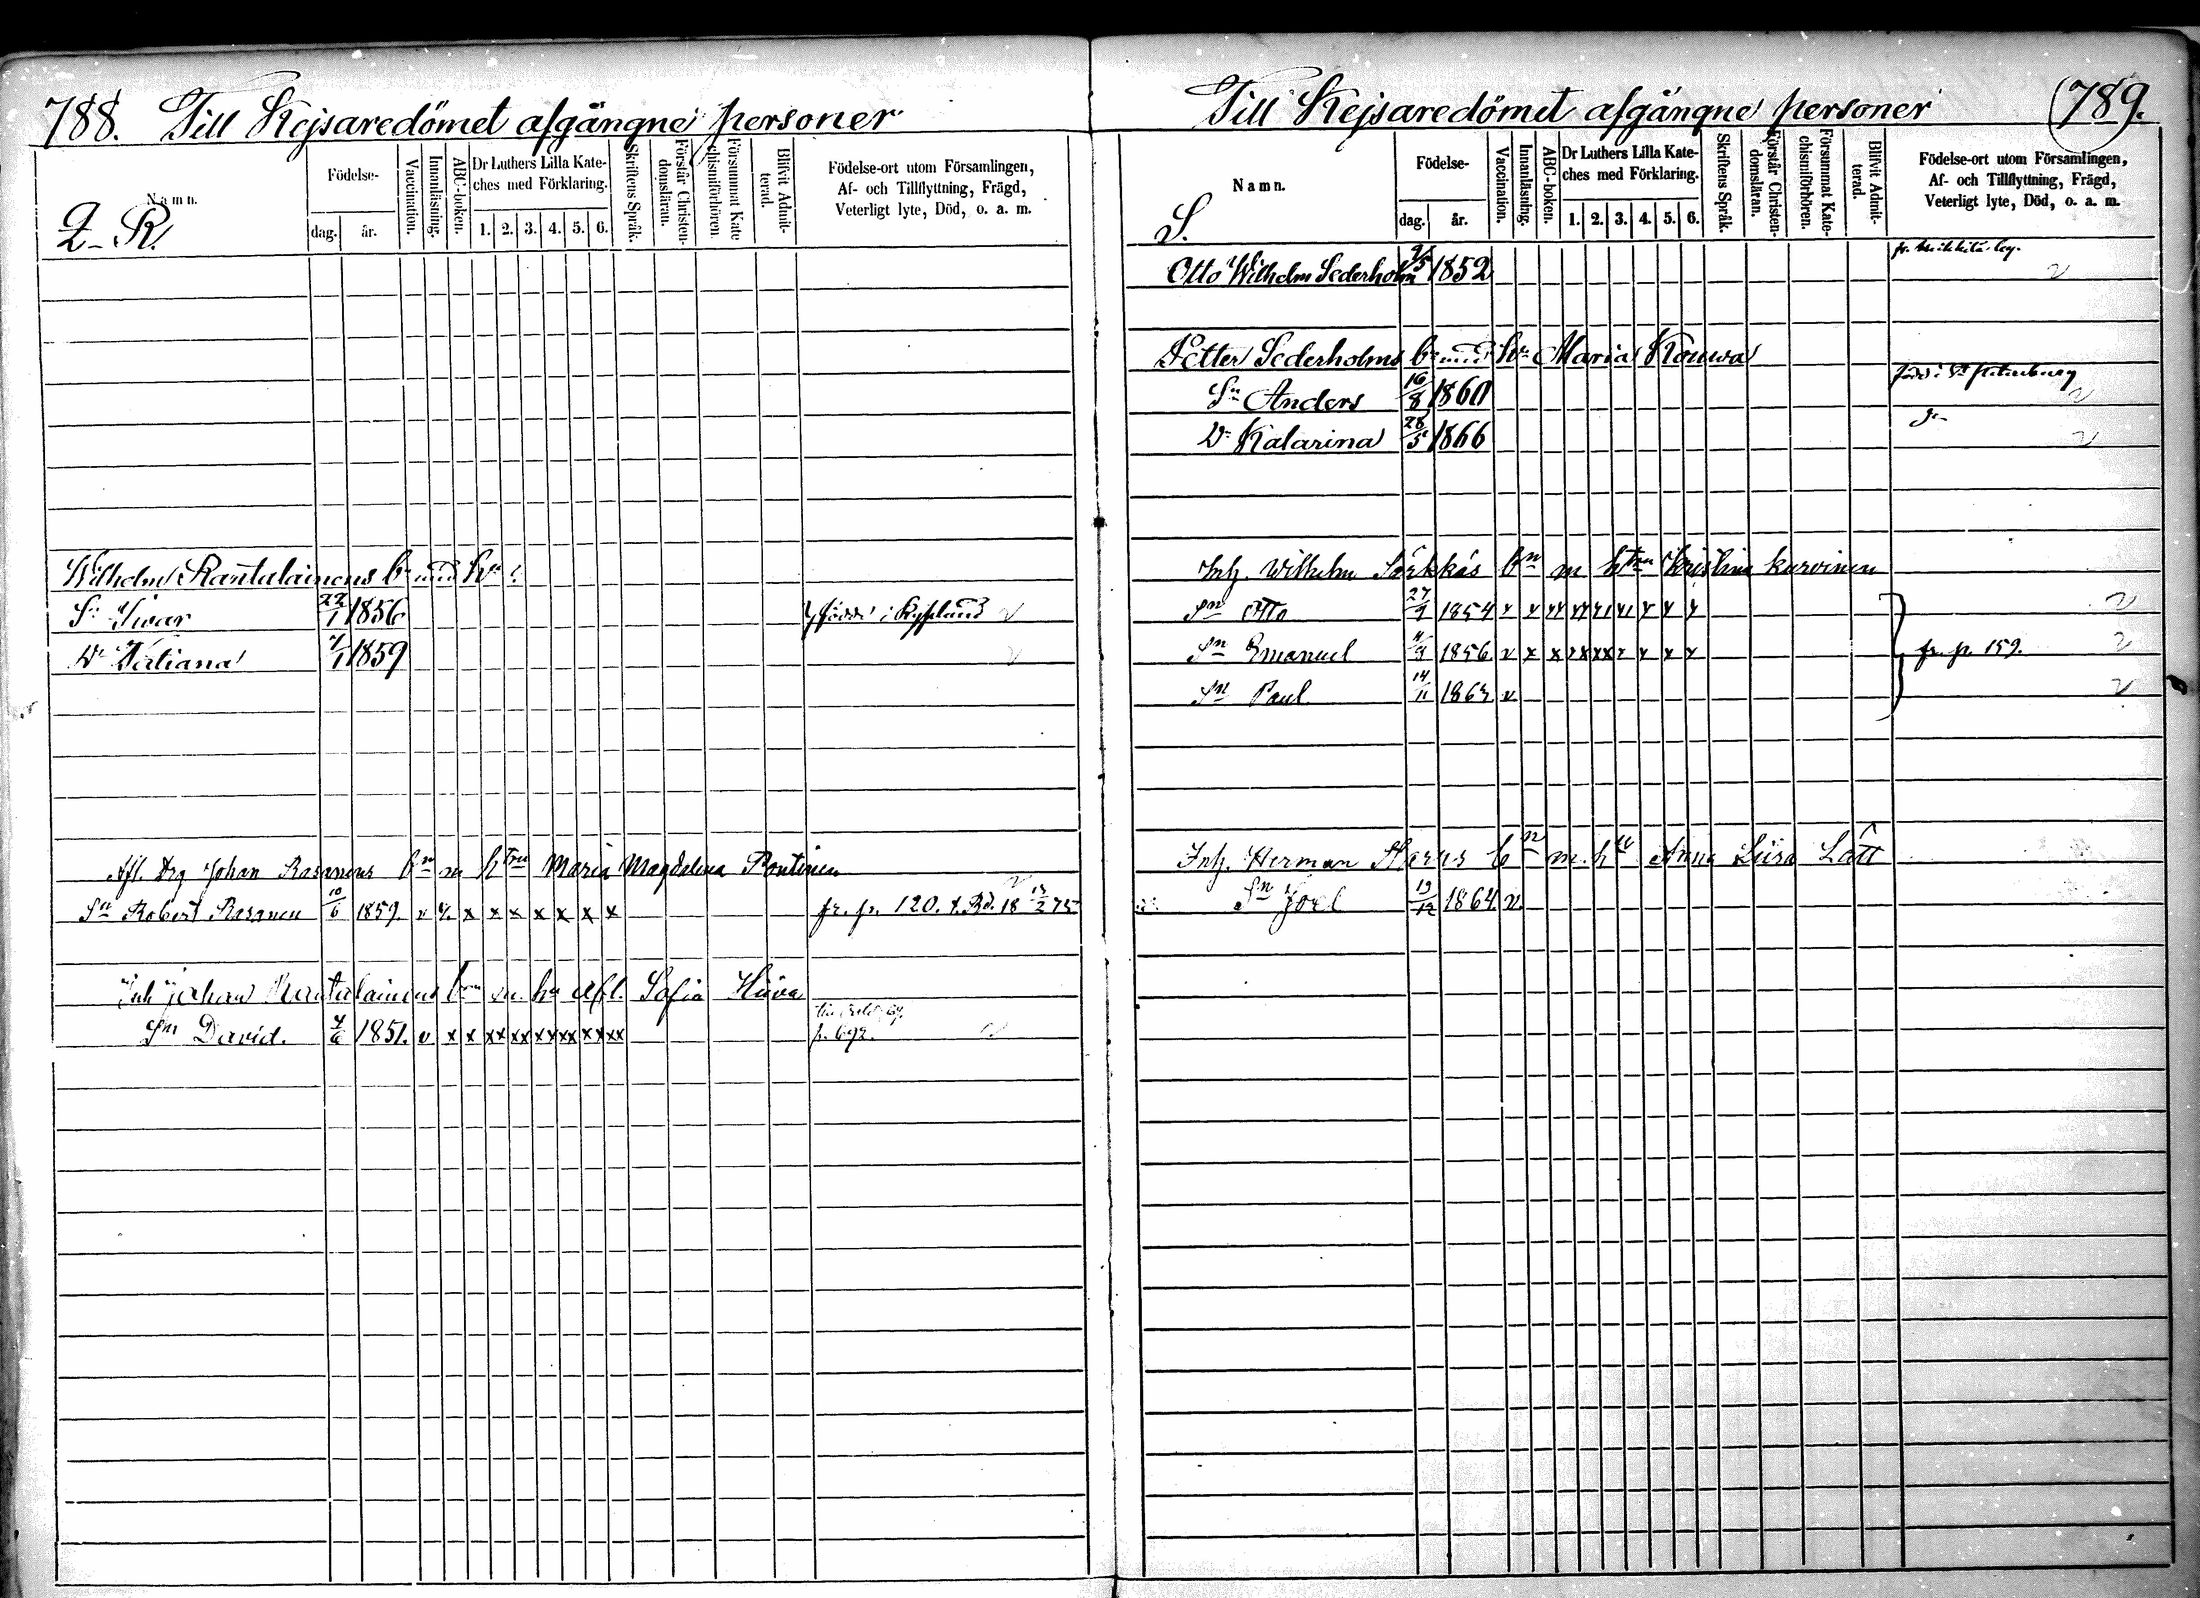 788. Till Kejsaredömet afgångne personer
Namn.
Q-R.
Födelse-
dag. år.
Vaccination.
Innanläsning.
ABC-boken.
Dr Luthers Lilla Kate-
ches med Förklaring.
1. 2. 3. 4. 5. 6.
Skriftens Språk.
Förstår Christen-
domsläran.
Försummat Kate
chismiförhören.
Blifvit Admit-
terad.
Födelse-ort utom Församlingen,
Af- och Tillflyttning, Frägd,
Veterligt lyte, Död, o. a. m.
Wilhelm Rantalainens bn med hu:
Sn Iwar 22/1 1856 födde i Ryssland v
Dr Tatiana 7/1 1859 v
Afl. Drg Johan Rasanens bn m htru Maria Magdalena Pontinen
Sn Robert Rasanen 10/6 1859. v x x x x x x x x fr. p. 120.
Inh Johan Rantalainens bn m. hu Afl. Sofia Hiiva
Sn David. 4/6 1851. v x x xx xx xx xx xx xx p. 692. v
Till Kejsaredömet afgångne personer 789.
Namn.
S.
Födelse-
dag. år.
Vaccination.
Innanläsning.
ABC-boken.
Dr Luthers Lilla Kate-
ches med Förklaring.
1. 2. 3. 4. 5. 6.
Skriftens Språk.
Förstår Christen-
domsläran.
Försummat Kate-
chismiförhören.
Blifvit Admit-
terad.
Födelse-ort utom Församlingen,
Af- och Tillflyttning, Frägd,
Veterligt lyte, Död, o. a. m.
Otto Wilhelm Sederholm 9/5 1852 v
Petter Sederholms bn med hu Maria Kouwa
Sn Anders 16/8 1860 född i St Petersburg v
Dr Katarina 28/5 1866 do v
Inh. Wilhelm Särkkäs bn m htru Kristina Kurvinen
Sn Otto 27/9 1854 v x v
Sn Emanuel 11/9 1856. v x x fr. p. 159. v
Sn Paul 14/11 1863 v v
Inh. Herman bn m. hu Anna Liisa Lätt
Sn Joel 19/12 1864. v.